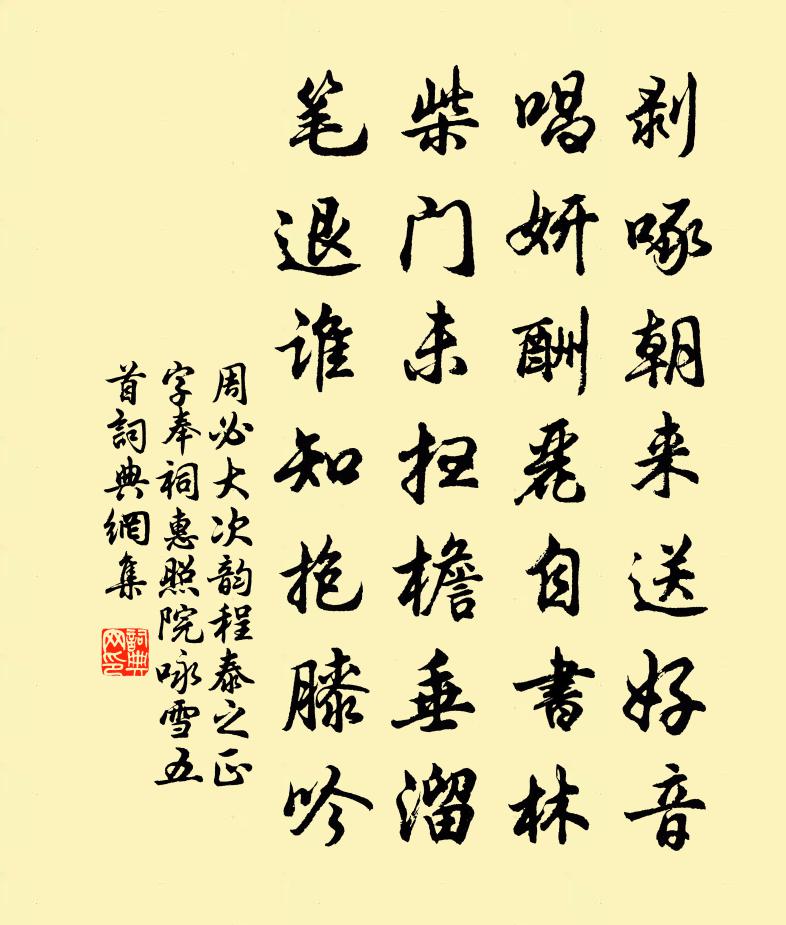 剥啄朝来送好音
唱妍酬丽自书林
柴门未扫檐垂溜
笔退谁知抱膝吟
周必大次韵程泰之正
字奉祠惠照院咏雪五
首詞典網集
詞典
网印